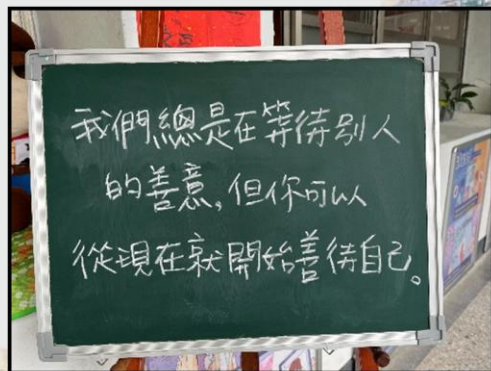 我們總是在等待別人
的善意,但你可以
從現在就開始善待自己。